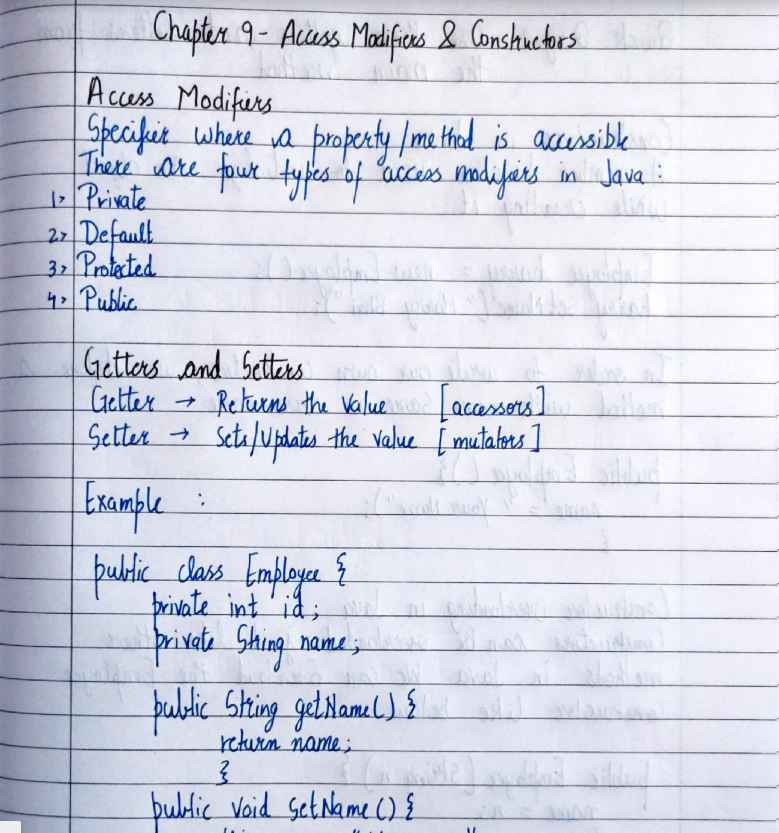 Chapter 9 - Access Modifiers & Constructors
Access Modifiers
Specifier where a property/method is accessible
There are four types of access modifiers in Java :
1> Private
2> Default
3> Protected
4> Public
Getters and Setters
Getter → Returns the value [accessors]
Setter → Sets/Updates the value [mutators]
Example :
public class Employee {
private int id;
private String name;
public String getName() {
return name;
}
public void SetName() {